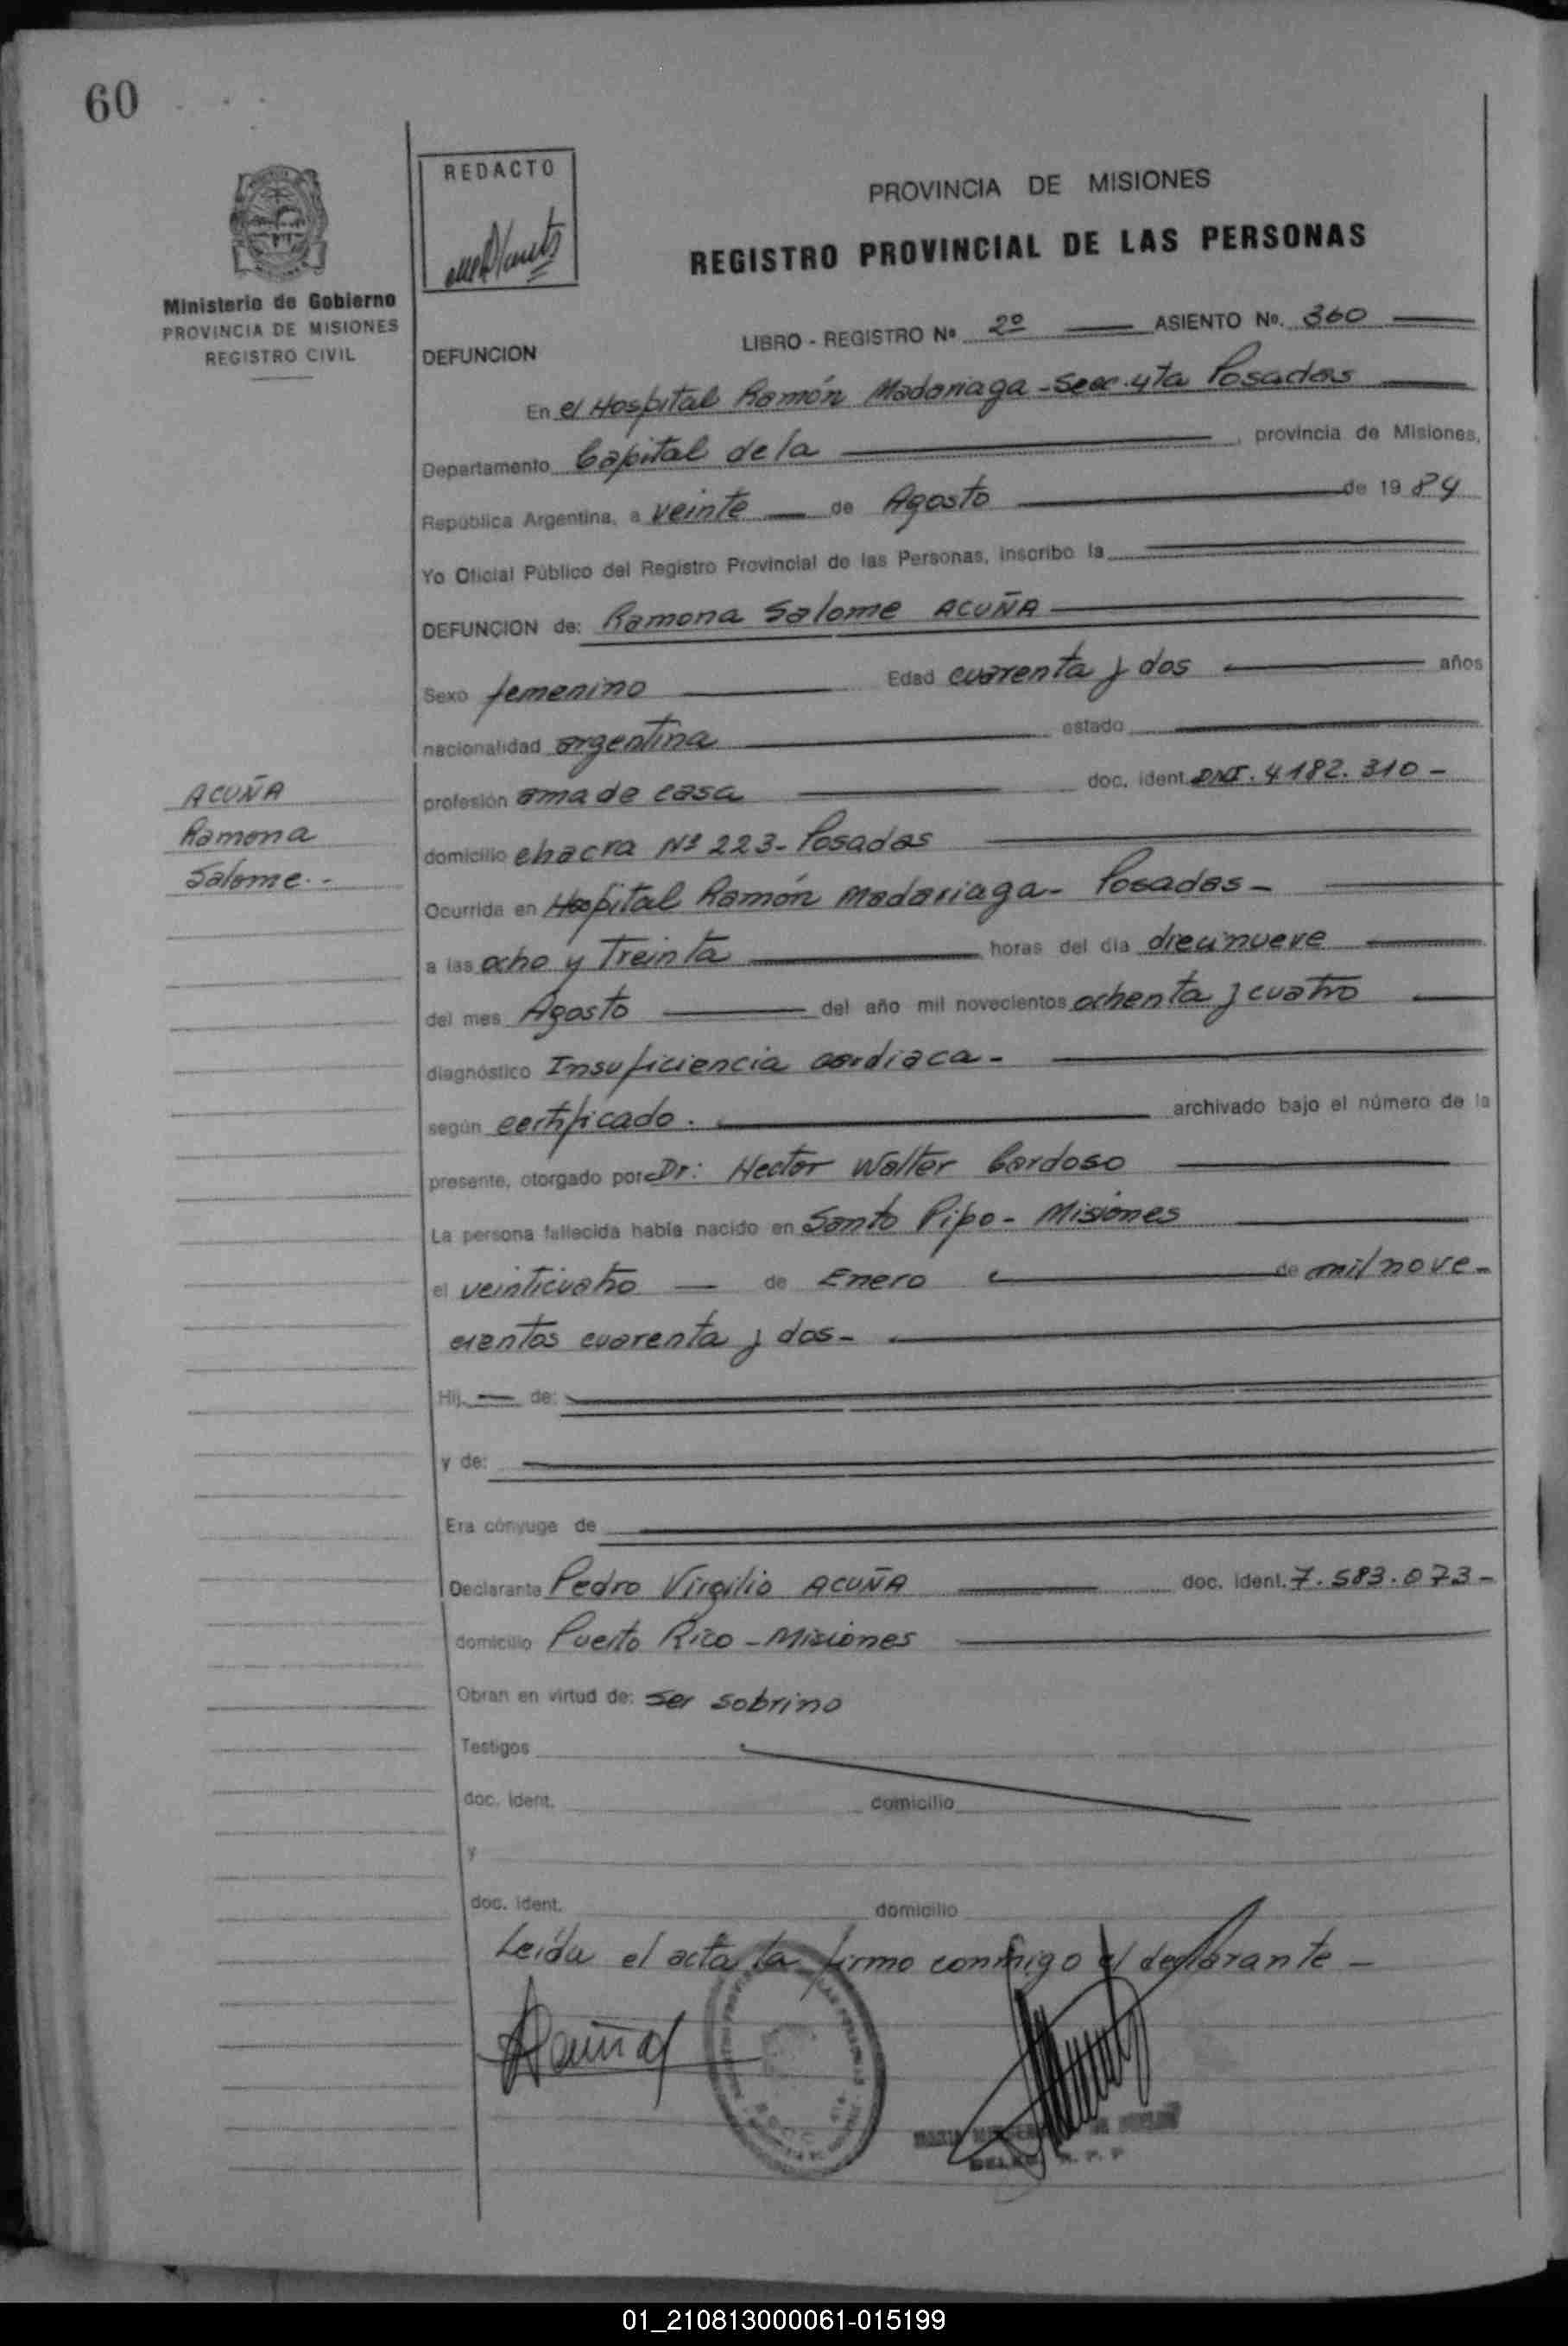 60
REDACTO
PROVINCIA DE MISIONES
REGISTRO PROVINCIAL DE LAS PERSONAS
Ministerio de Gobierno
PROVINCIA DE MISIONES
REGISTRO CIVIL
DEFUNCION
LIBRO - REGISTRO Nº 2º ASIENTO Nº. 360
En el Hospital Ramón Madariaga - Secc. 4ta Posadas
Departamento Capital de la provincia de Misiones,
República Argentina, a veinte de Agosto de 1984
Yo Oficial Público del Registro Provincial de las Personas, inscribo la
DEFUNCION de: Ramona Salome ACUÑA
Sexo femenino Edad cuarenta y dos años
nacionalidad argentina estado
profesión ama de casa doc. ident. DNI. 4182.310 -
domicilio chacra Nº 223 - Posadas
ACUÑA
Ramona
Salome. -
Ocurrida en Hospital Ramón Madariaga - Posadas -
a las ocho y treinta horas del día diecinueve
del mes Agosto del año mil novecientos ochenta y cuatro
diagnóstico Insuficiencia cardiaca -
según certificado. archivado bajo el número de la
presente, otorgado por Dr: Hector Walter Cardoso
La persona fallecida había nacido en Santo Pipo - Misiones
el veinticuatro de Enero de mil nove-
cientos cuarenta y dos -
Hij de:
y de:
Era cónyuge de
Declarante Pedro Virgilio ACUÑA doc. ident. 7.583.073 -
domicilio Puerto Rico - Misiones
Obran en virtud de: ser sobrino
Testigos
doc. ident. domicilio
y
doc. ident. domicilio
Leída el acta la firmo conmigo el declarante -
Acuña
01_210813000061-015199